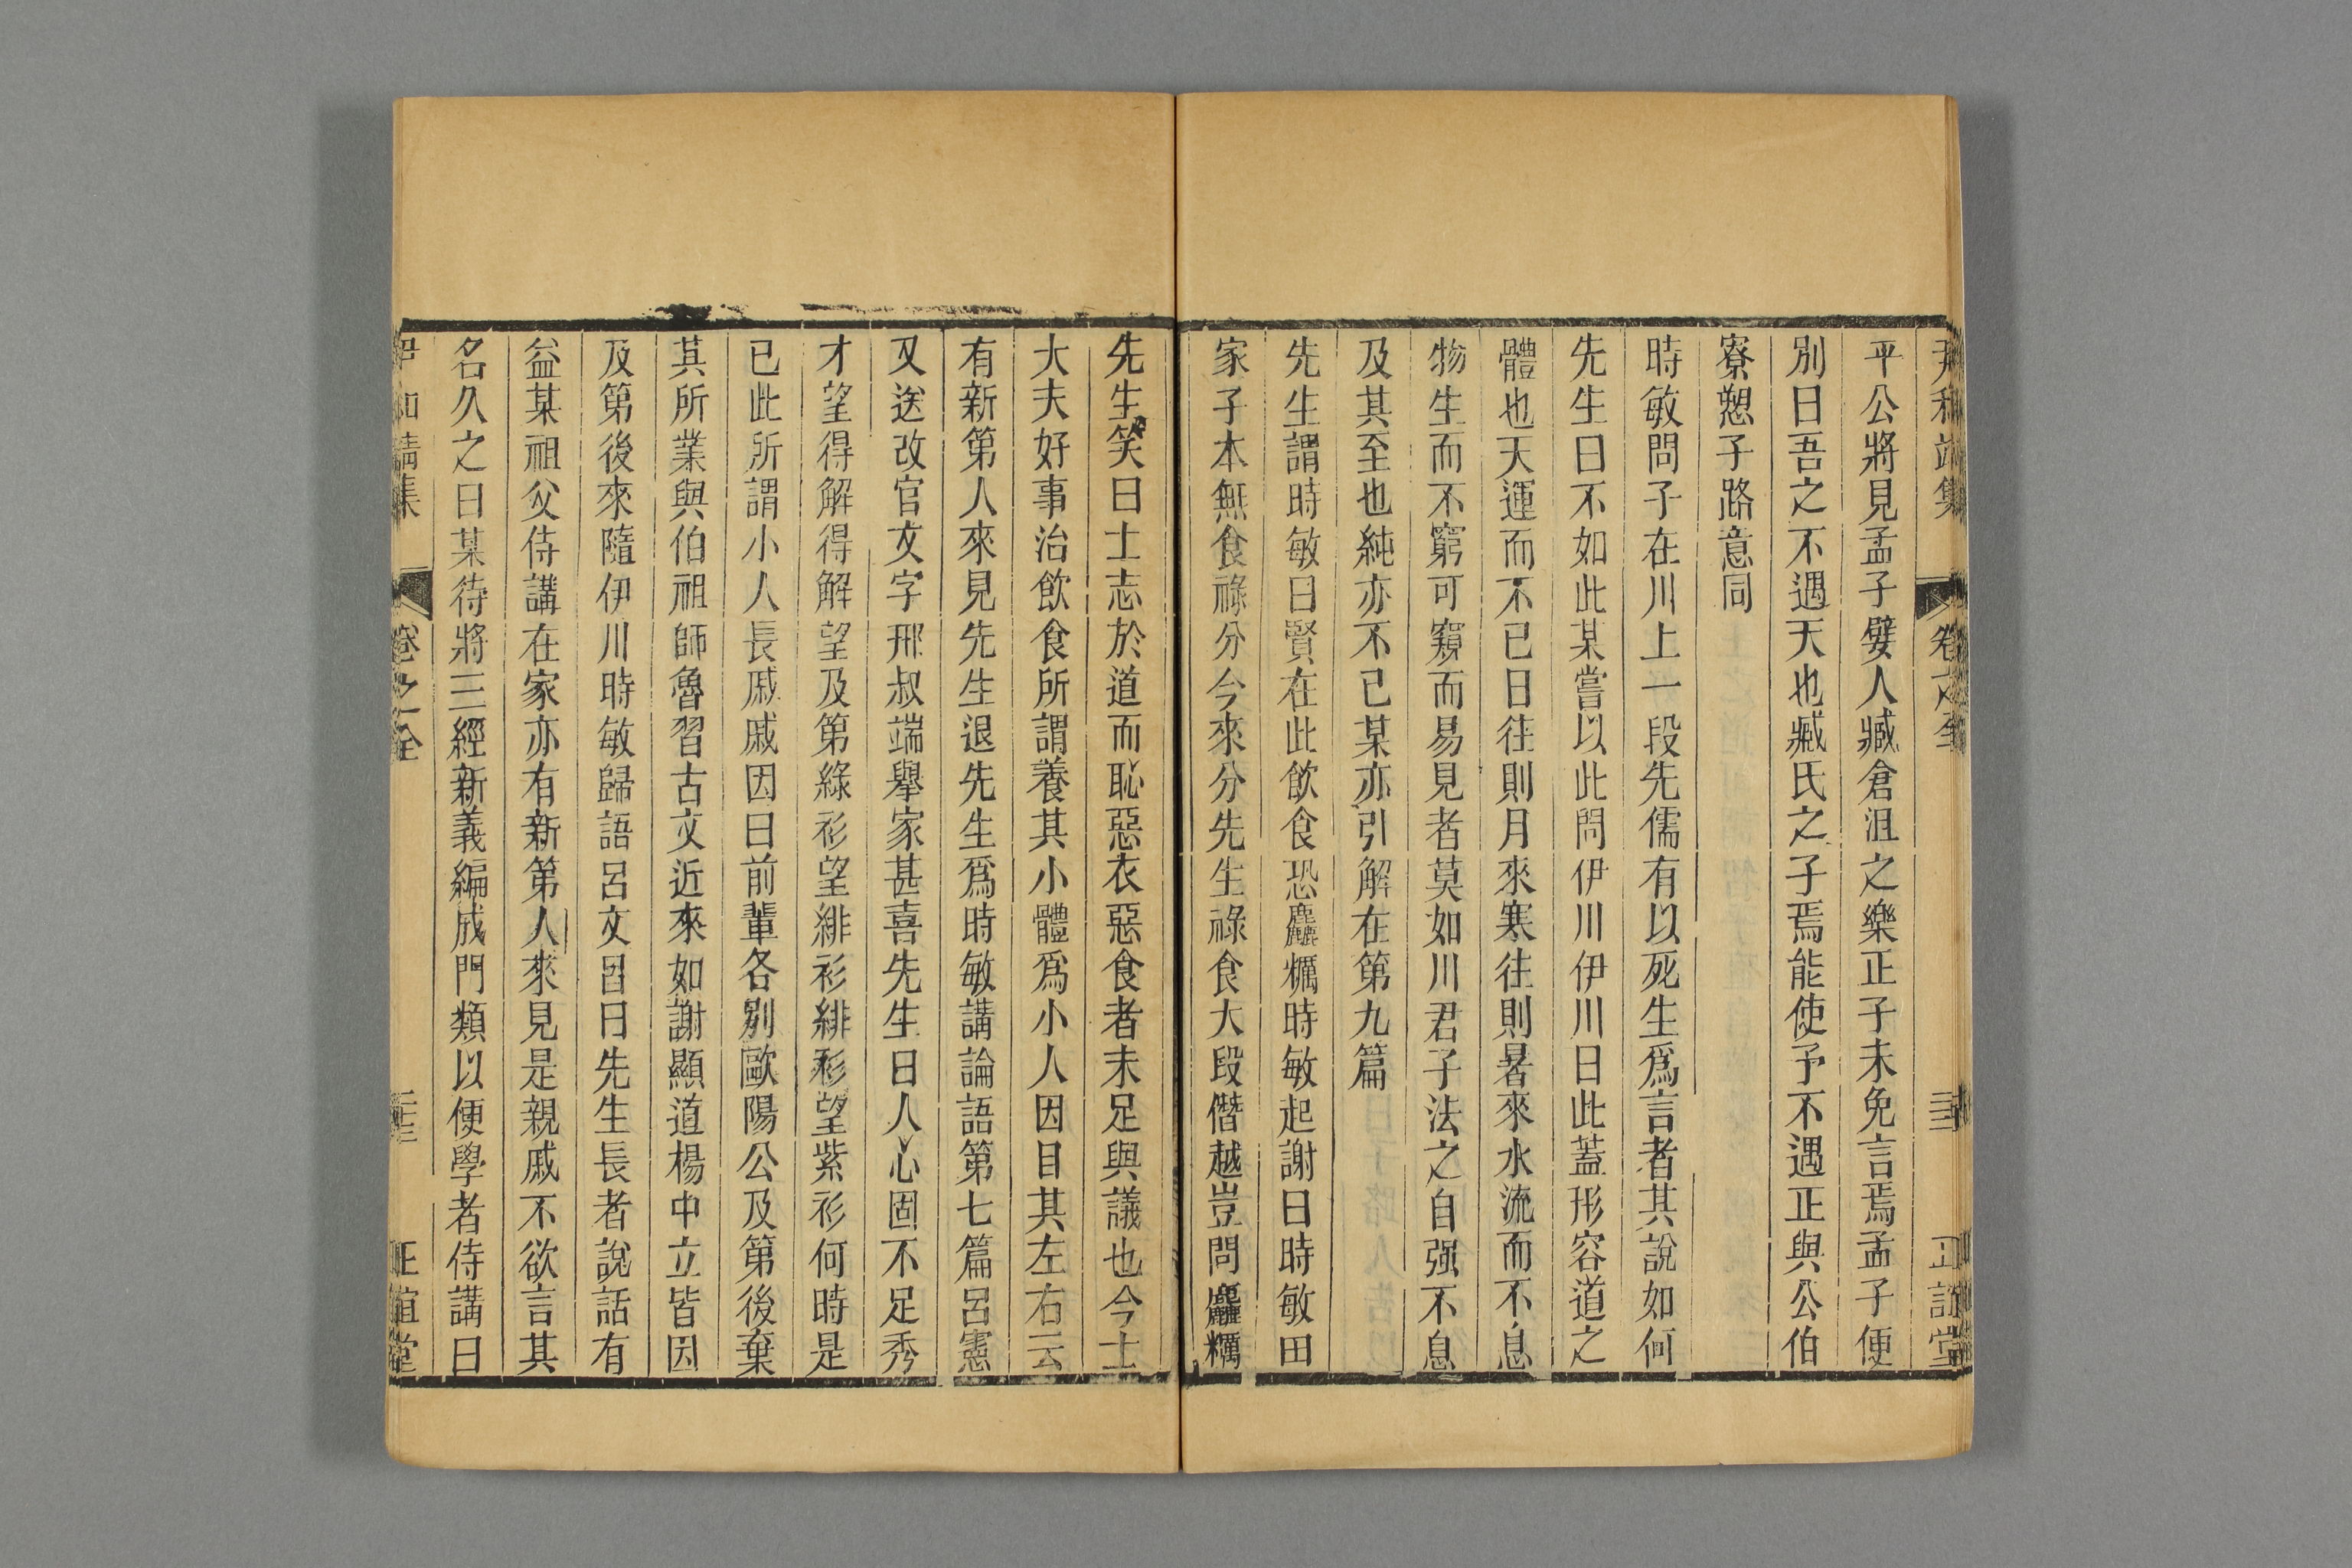 尹和靖集 卷之全 正誼堂
平公將見孟子嬖人臧倉沮之樂正子未免言焉孟子便
別曰吾之不遇天也臧氏之子焉能使予不遇正與公伯
寮愬子路意同
時敏問子在川上一段先儒有以死生爲言者其說如何
先生曰不如此某嘗以此問伊川伊川曰此蓋形容道之
體也天運而不已日往則月來寒往則暑來水流而不息
物生而不窮可窺而易見者莫如川君子法之自强不息
及其至也純亦不已某亦引解在第九篇
先生謂時敏曰賢在此飲食恐麤糲時敏起謝曰時敏田
家子本無食祿分今來分先生祿食大段僭越豈問麤糲
先生笑曰士志於道而恥惡衣惡食者未足與議也今士
大夫好事治飲食所謂養其小體爲小人因目其左右云
有新第人來見先生退先生爲時敏講論語第七篇呂憲
又送改官文字邢叔端舉家甚喜先生曰人心固不足秀
才望得解得解望及第綠衫望緋衫緋衫望紫衫何時是
已此所謂小人長戚戚因曰前輩各別歐陽公及第後棄
其所業與伯祖師魯習古文近來如謝顯道楊中立皆因
及第後來隨伊川時敏歸語呂文㫺曰先生長者說話有
益某祖父侍講在家亦有新第人來見是親戚不欲言其
名久之曰某待將三經新義編成門類以便學者侍講曰
尹和靖集 卷之全 正誼堂